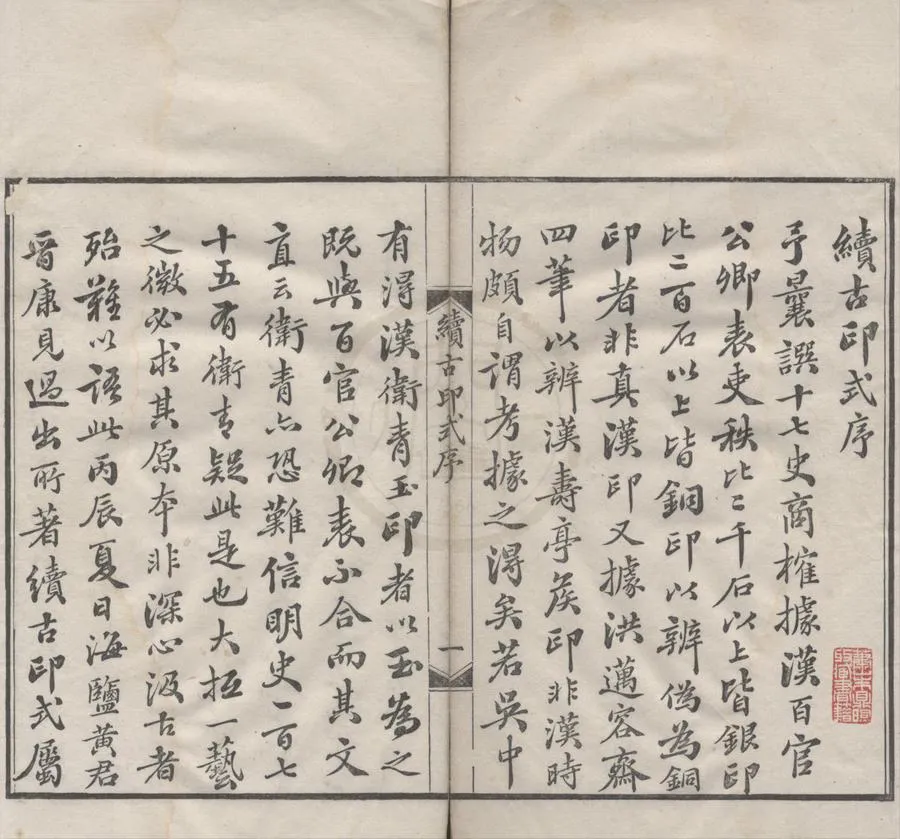 續古印式序
予曩譔十七史商榷據漢百官
公卿表吏秩比二千石以上皆銀印
比二百石以上皆銅印以辨偽為銅
印者非真漢印又據洪邁容齋
四筆以辨漢壽亭矦印非漢時
物頗自謂考據之淂矣若吳中
續古印式序
一
有淂漢衛青玉印者以玉為之
既與百官公卿表不合而其文
直云衛青亦恐難信明史一百七
十五有衛青疑此是也大抵一藝
之微必求其原本非深心汲古者
殆難以語此丙辰夏日海鹽黃君
晋康見過出所著續古印式屬